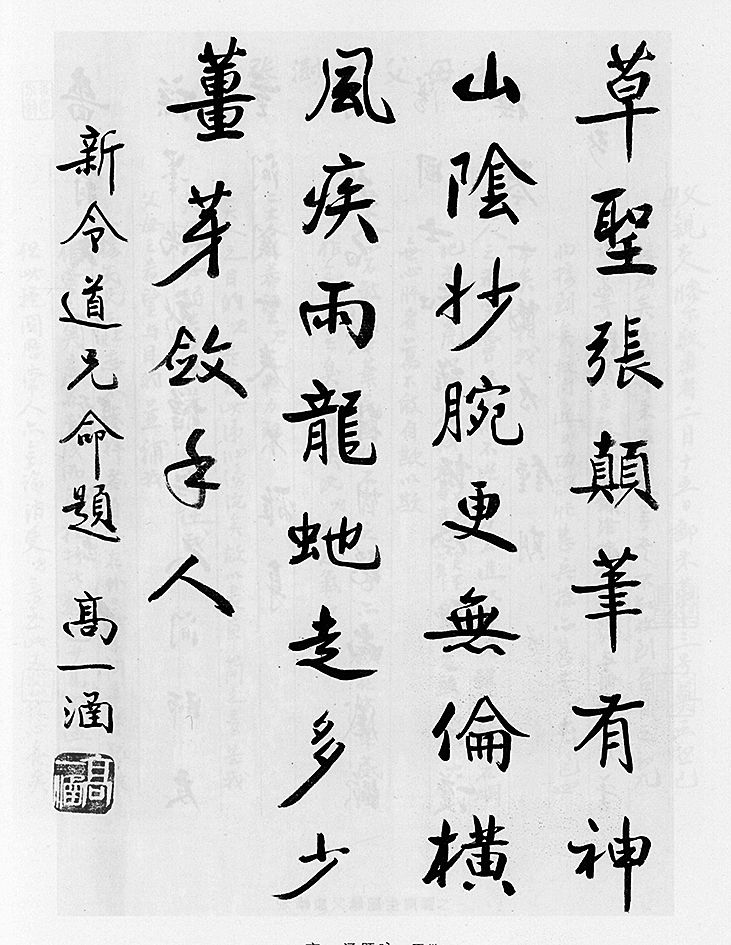 草聖張顛筆有神
山陰抄腕更無倫橫
風疾雨龍虵走多少
薑芽斂手人
新令道兄命題 高一涵
高一涵